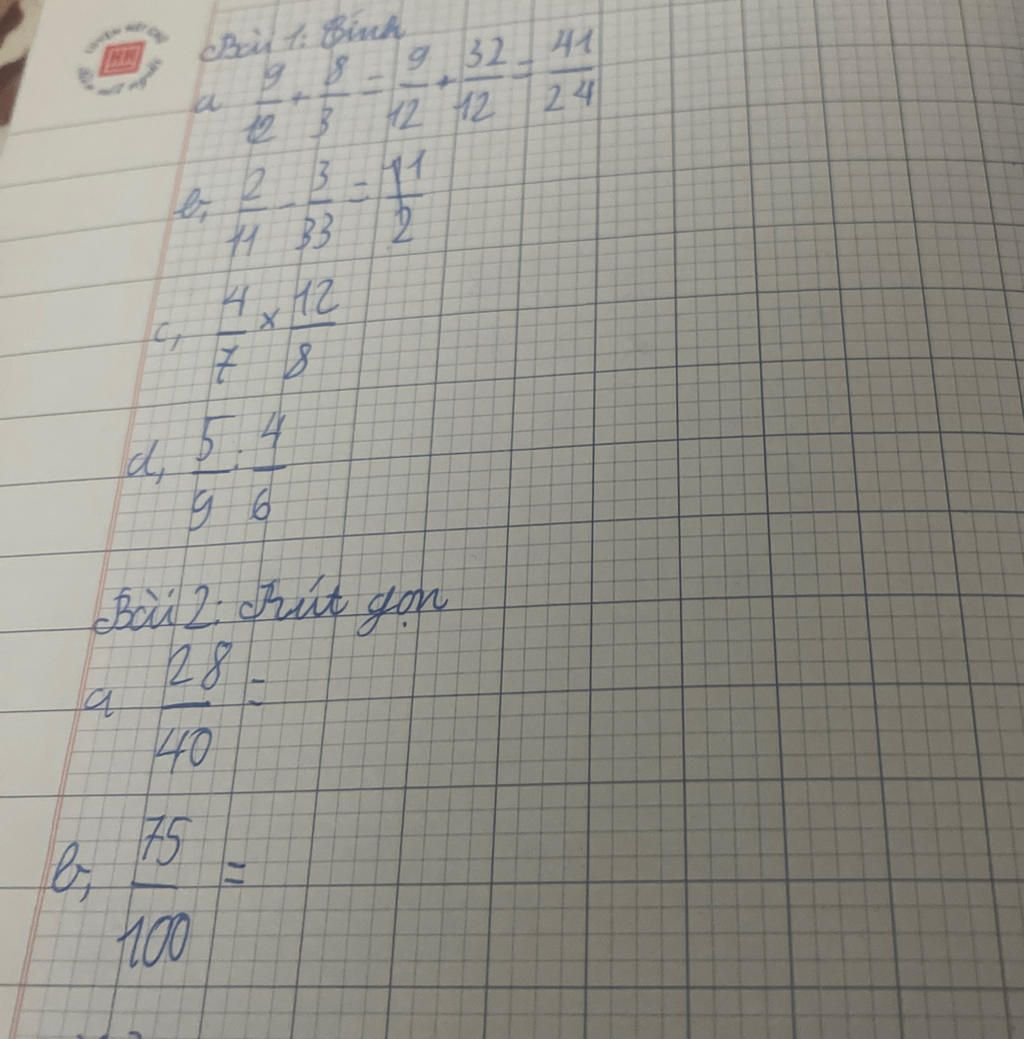 Bài 1: Tính
a 9/12 + 8/3 = 9/12 + 32/12 = 41/24
b, 2/11 - 3/33 = 11/2
c, 4/7 × 12/8
d, 5/9 : 4/6
Bài 2: Rút gọn
a 28/40 =
b, 75/100 =